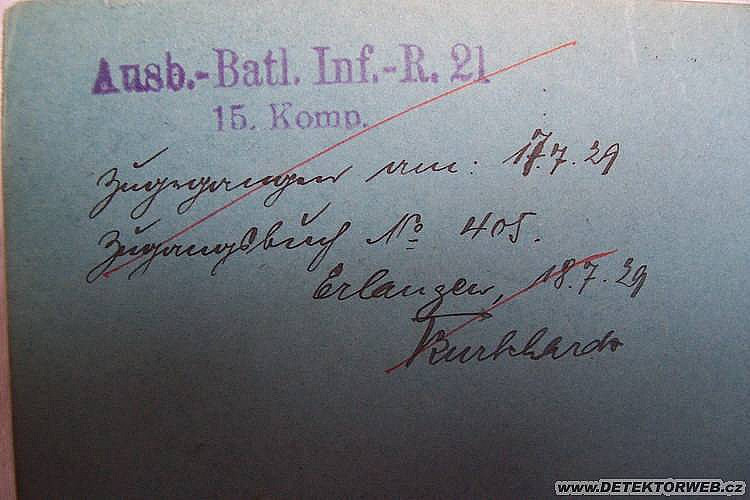 Ausb.-Batl. Inf.-R. 21
15. Komp.
Zugegangen am: 17.7.29
Zugangsbuch № 405.
Erlangen, 18.7.29
Burkhardt
www.DETEKTORWEB.cz